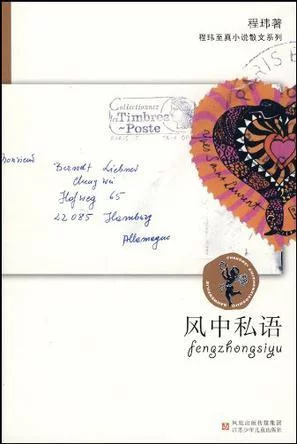 程玮著
程玮至真小说散文系列
Collectionnez
les Timbres
~Poste
PARIS
Monsieur
Berndt Liebner
Cheng Wei
Hofweg 65
22085 Hamburg
Allemagne
Yves Saint Laurent
风中私语
fengzhongsiyu
凤凰出版传媒集团
江苏少年儿童出版社